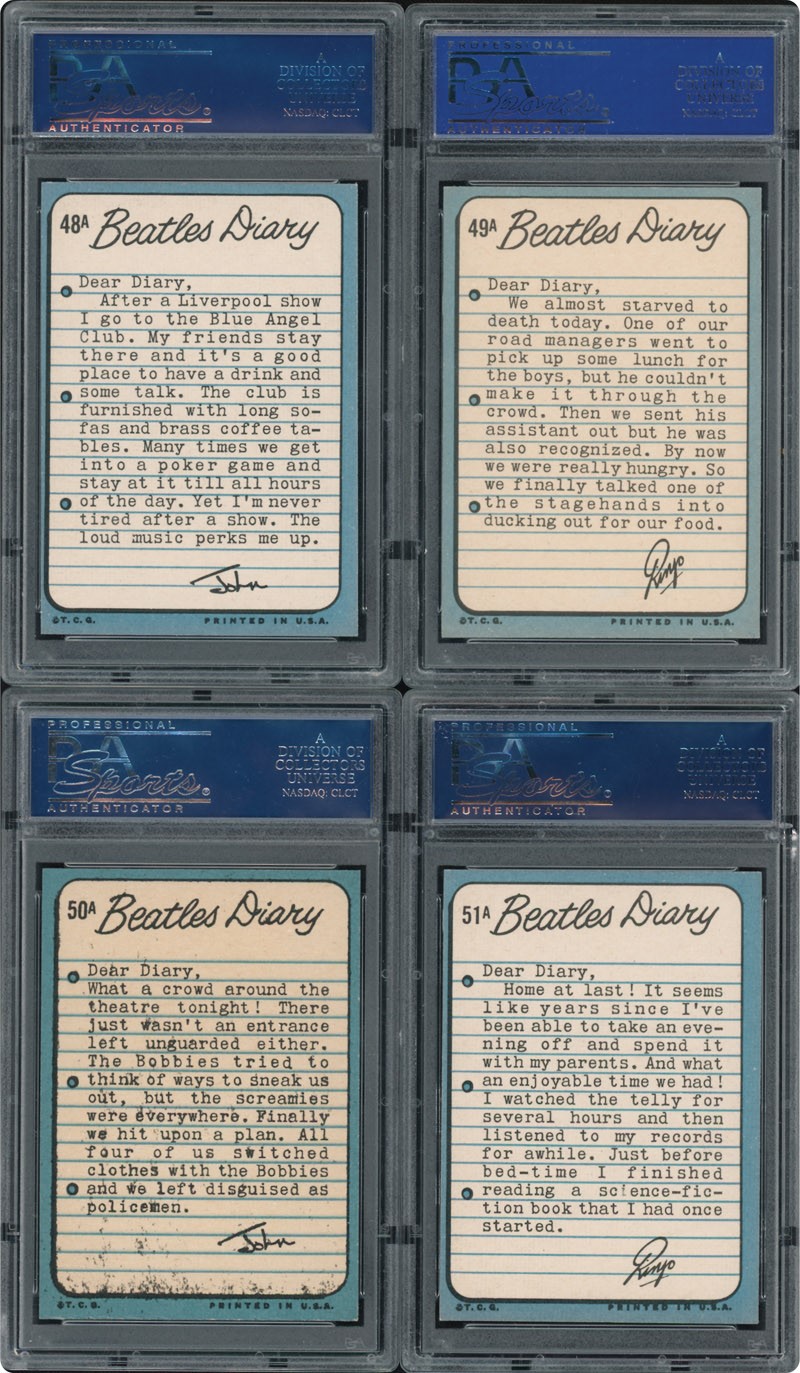 PROFESSIONAL
PSA
Sports®
AUTHENTICATOR
A
DIVISION OF
COLLECTORS
UNIVERSE
NASDAQ: CLCT
48A Beatles Diary
Dear Diary,
After a Liverpool show
I go to the Blue Angel
Club. My friends stay
there and it's a good
place to have a drink and
some talk. The club is
furnished with long so-
fas and brass coffee ta-
bles. Many times we get
into a poker game and
stay at it till all hours
of the day. Yet I'm never
tired after a show. The
loud music perks me up.
John
©T.C.G. PRINTED IN U.S.A.
PROFESSIONAL
PSA
Sports®
AUTHENTICATOR
A
DIVISION OF
COLLECTORS
UNIVERSE
NASDAQ: CLCT
49A Beatles Diary
Dear Diary,
We almost starved to
death today. One of our
road managers went to
pick up some lunch for
the boys, but he couldn't
make it through the
crowd. Then we sent his
assistant out but he was
also recognized. By now
we were really hungry. So
we finally talked one of
the stagehands into
ducking out for our food.
Ringo
©T.C.G. PRINTED IN U.S.A.
PROFESSIONAL
PSA
Sports®
AUTHENTICATOR
A
DIVISION OF
COLLECTORS
UNIVERSE
NASDAQ: CLCT
50A Beatles Diary
Dear Diary,
What a crowd around the
theatre tonight! There
just wasn't an entrance
left unguarded either.
The Bobbies tried to
think of ways to sneak us
out, but the screamies
were everywhere. Finally
we hit upon a plan. All
four of us switched
clothes with the Bobbies
and we left disguised as
policemen.
John
©T.C.G. PRINTED IN U.S.A.
PROFESSIONAL
PSA
Sports®
AUTHENTICATOR
A
DIVISION OF
COLLECTORS
UNIVERSE
NASDAQ: CLCT
51A Beatles Diary
Dear Diary,
Home at last! It seems
like years since I've
been able to take an eve-
ning off and spend it
with my parents. And what
an enjoyable time we had!
I watched the telly for
several hours and then
listened to my records
for awhile. Just before
bed-time I finished
reading a science-fic-
tion book that I had once
started.
Ringo
©T.C.G. PRINTED IN U.S.A.